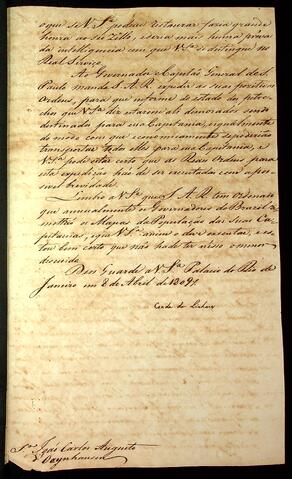 o que se V. S.ª poder restaurar faria grande
honra ao seu Zello, e seria mais huma prova
da intelligencia com que V. S.ª se distingue no
Real Serviço.
Ao Governador e Capitão General de S.
Paulo manda S. A. R. expedir as suas positivas
Ordens, para que informe do estado dos petre-
chos que V. S.ª diz estarem ali demorados, sendo
destinados para essa Capitania, e igualmente
do modo com que economicamente se poderião
transportar todos elles para essa Capitania, e
V. S.ª pode estar certo que as Reaes Ordens para
esta expedição hão de ser executadas com a pos-
sivel brevidade.
Lembro a V. S.ª que S. A. R. tem ordenado
que annualmente os Governadores do Brazil re-
mettão os Mapas da População das suas Ca-
pitanias, e que V. S.ª assim o deve executar, e es-
tou bem certo que não hade ter nisso o menor
descuido.
Deos Guarde a V. S.ª Palacio do Rio de
Janeiro em 8 de Abril de 1809
Conde de Linhares
Sr. João Carlos Augusto
d'Oeynhausen